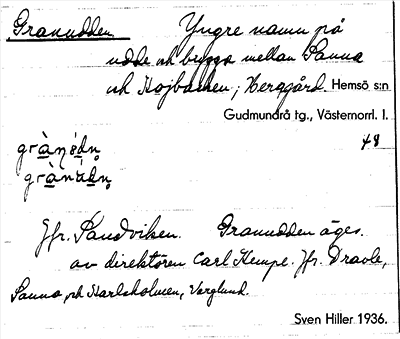 Granudden Yngre namn på
udde och brygga mellan Sanna
och Kojbacken, Herggård. Hemsö s:n
Gudmundrå tg., Västernorrl. l.
48
grànúdn̥
grànùdn̥
Jfr. Sandviken. Granudden äges
av direktören Carl Kempe. Jfr.
Sanna, och Karlsholmen,
Sven Hiller 1936.